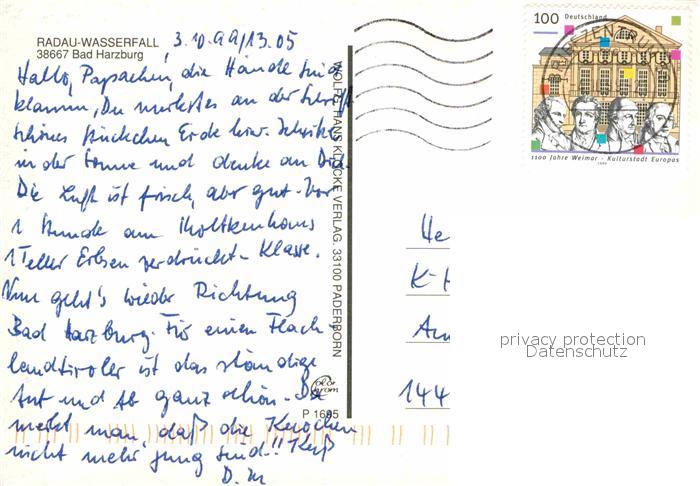 RADAU-WASSERFALL
38667 Bad Harzburg
3.10.99/13.05
Hallo, Papachen, die Hände sind
klamm, Du merkst es an der Schrift
schönes Stückchen Erde hier. Sitze
in der Sonne und denke an Dich.
Die Luft ist frisch, aber gut. Vor
1 Stunde am Molkenhaus
1 Teller Erbsen verdrückt. Klasse.
Nun geht's wieder Richtung
Bad Harzburg. Für einen Flach-
landtiroler ist das ständige
Auf und Ab ganz schön. Da
merkt man, daß die Knochen
nicht mehr jung sind!! Kuß
D. M
WOLFF-HANS KLOCKE VERLAG, 33100 PADERBORN
color
chrom
P 1695
100 Deutschland
1100 Jahre Weimar - Kulturstadt Europas
1999
He
K-H
Am
144
privacy protection
Datenschutz